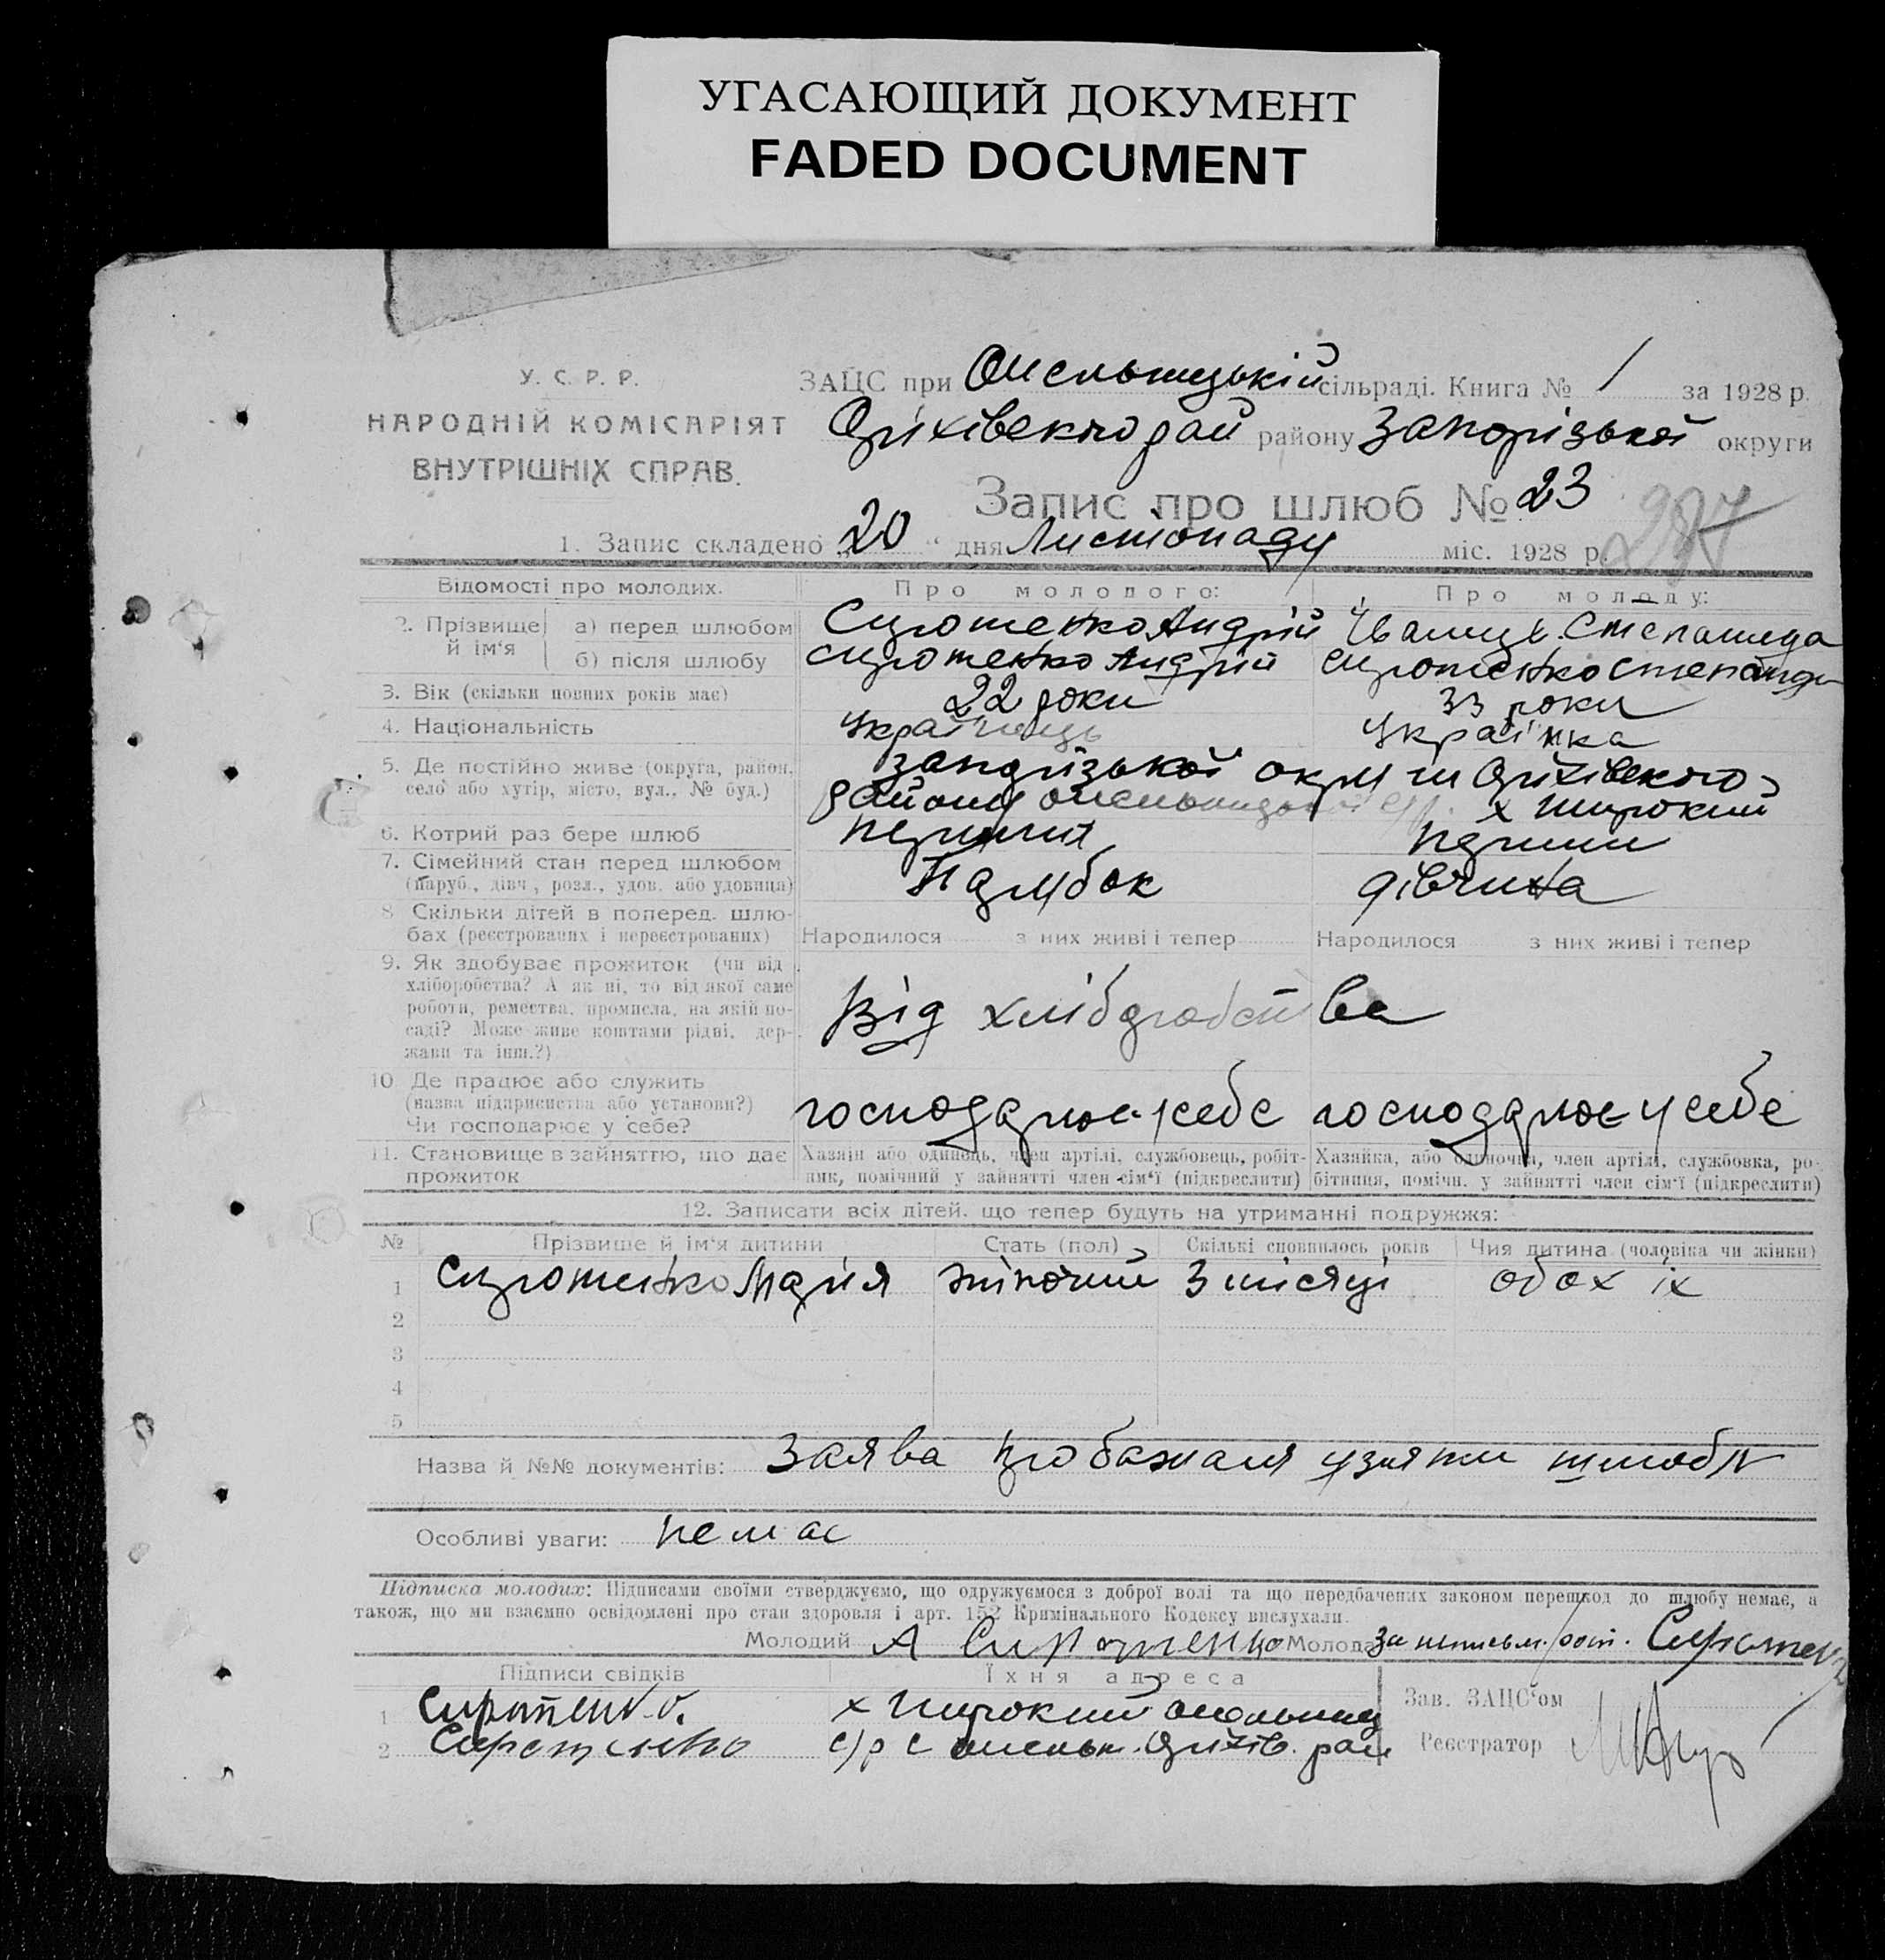 УГАСАЮЩИЙ ДОКУМЕНТ
FADED DOCUMENT
У. С. Р. Р.
НАРОДНІЙ КОМІСАРІЯТ
ВНУТРІШНІХ СПРАВ.
ЗАЦС при Омельницькій сільраді. Книга № 1 за 1928 р.
Оріхівського рай району Запорізької округи
Запис про шлюб № 23
287
1. Запис складено „20“ дня Листопаду міс. 1928 р.
Відомості про молодих. Про молодого: Про молоду:
2. Прізвище й ім'я
а) перед шлюбом Сиротенко Андрій Степанида
б) після шлюбу Сиротенко Андрій Сиротенко Степанида
3. Вік (скільки повних років має) 22 роки 33 роки
4. Національність Українець Українка
5. Де постійно живе (округа, район, село або хутір, місто, вул., № буд.) Запорізької окру ги Оріхівського
району Омельницької с/р. х Широкий
6. Котрий раз бере шлюб перший перший
7. Сімейний стан перед шлюбом (паруб., дівч., розл., удов. або удовиця) Парубок дівчина
8. Скільки дітей в поперед. шлюбах (реєстрованих і нереєстрованих) Народилося з них живі і тепер Народилося з них живі і тепер
9. Як здобуває прожиток (чи від хліборобства? А як ні, то від якої саме роботи, ремества, промисла, на якій посаді? Може живе коштами рідні, держави та інш.?) Від хліборобства
10. Де працює або служить (назва підприємства або установи?) Чи господарює у себе? господарює у себе господарює у себе
11. Становище в зайняттю, що дає прожиток
Хазяїн або одинець, член артілі, службовець, робітник, помічний у зайнятті член сім'ї (підкреслити)
Хазяйка, або одиночка, член артілі, службовка, робітниця, помічн. у зайнятті член сім'ї (підкреслити)
12. Записати всіх дітей, що тепер будуть на утриманні подружжя:
№ Прізвище й ім'я дитини Стать (пол) Скількі сповнилось років Чия дитина (чоловіка чи жінки)
1 Сиротенко Марія жіночий 3 місяці обох їх
2
3
4
5
Назва й №№ документів: Заява про бажаня узяти шлюбу
Особливі уваги: немає
Підписка молодих: Підписами своїми стверджуємо, що одружуємося з доброї волі та що передбачених законом перешкод до шлюбу немає, а
також, що ми взаємно освідомлені про стан здоровля і арт. 152 Кримінального Кодексу вислухали.
Молодий А Сиротенко Молода За Сиротенко
Підписи свідків Їхня адреса
1 Сиротенко. х Широкий Омельниц
2 Сиротенко с/р Оріхів. рай
Зав. ЗАЦС'ом
Реєстратор